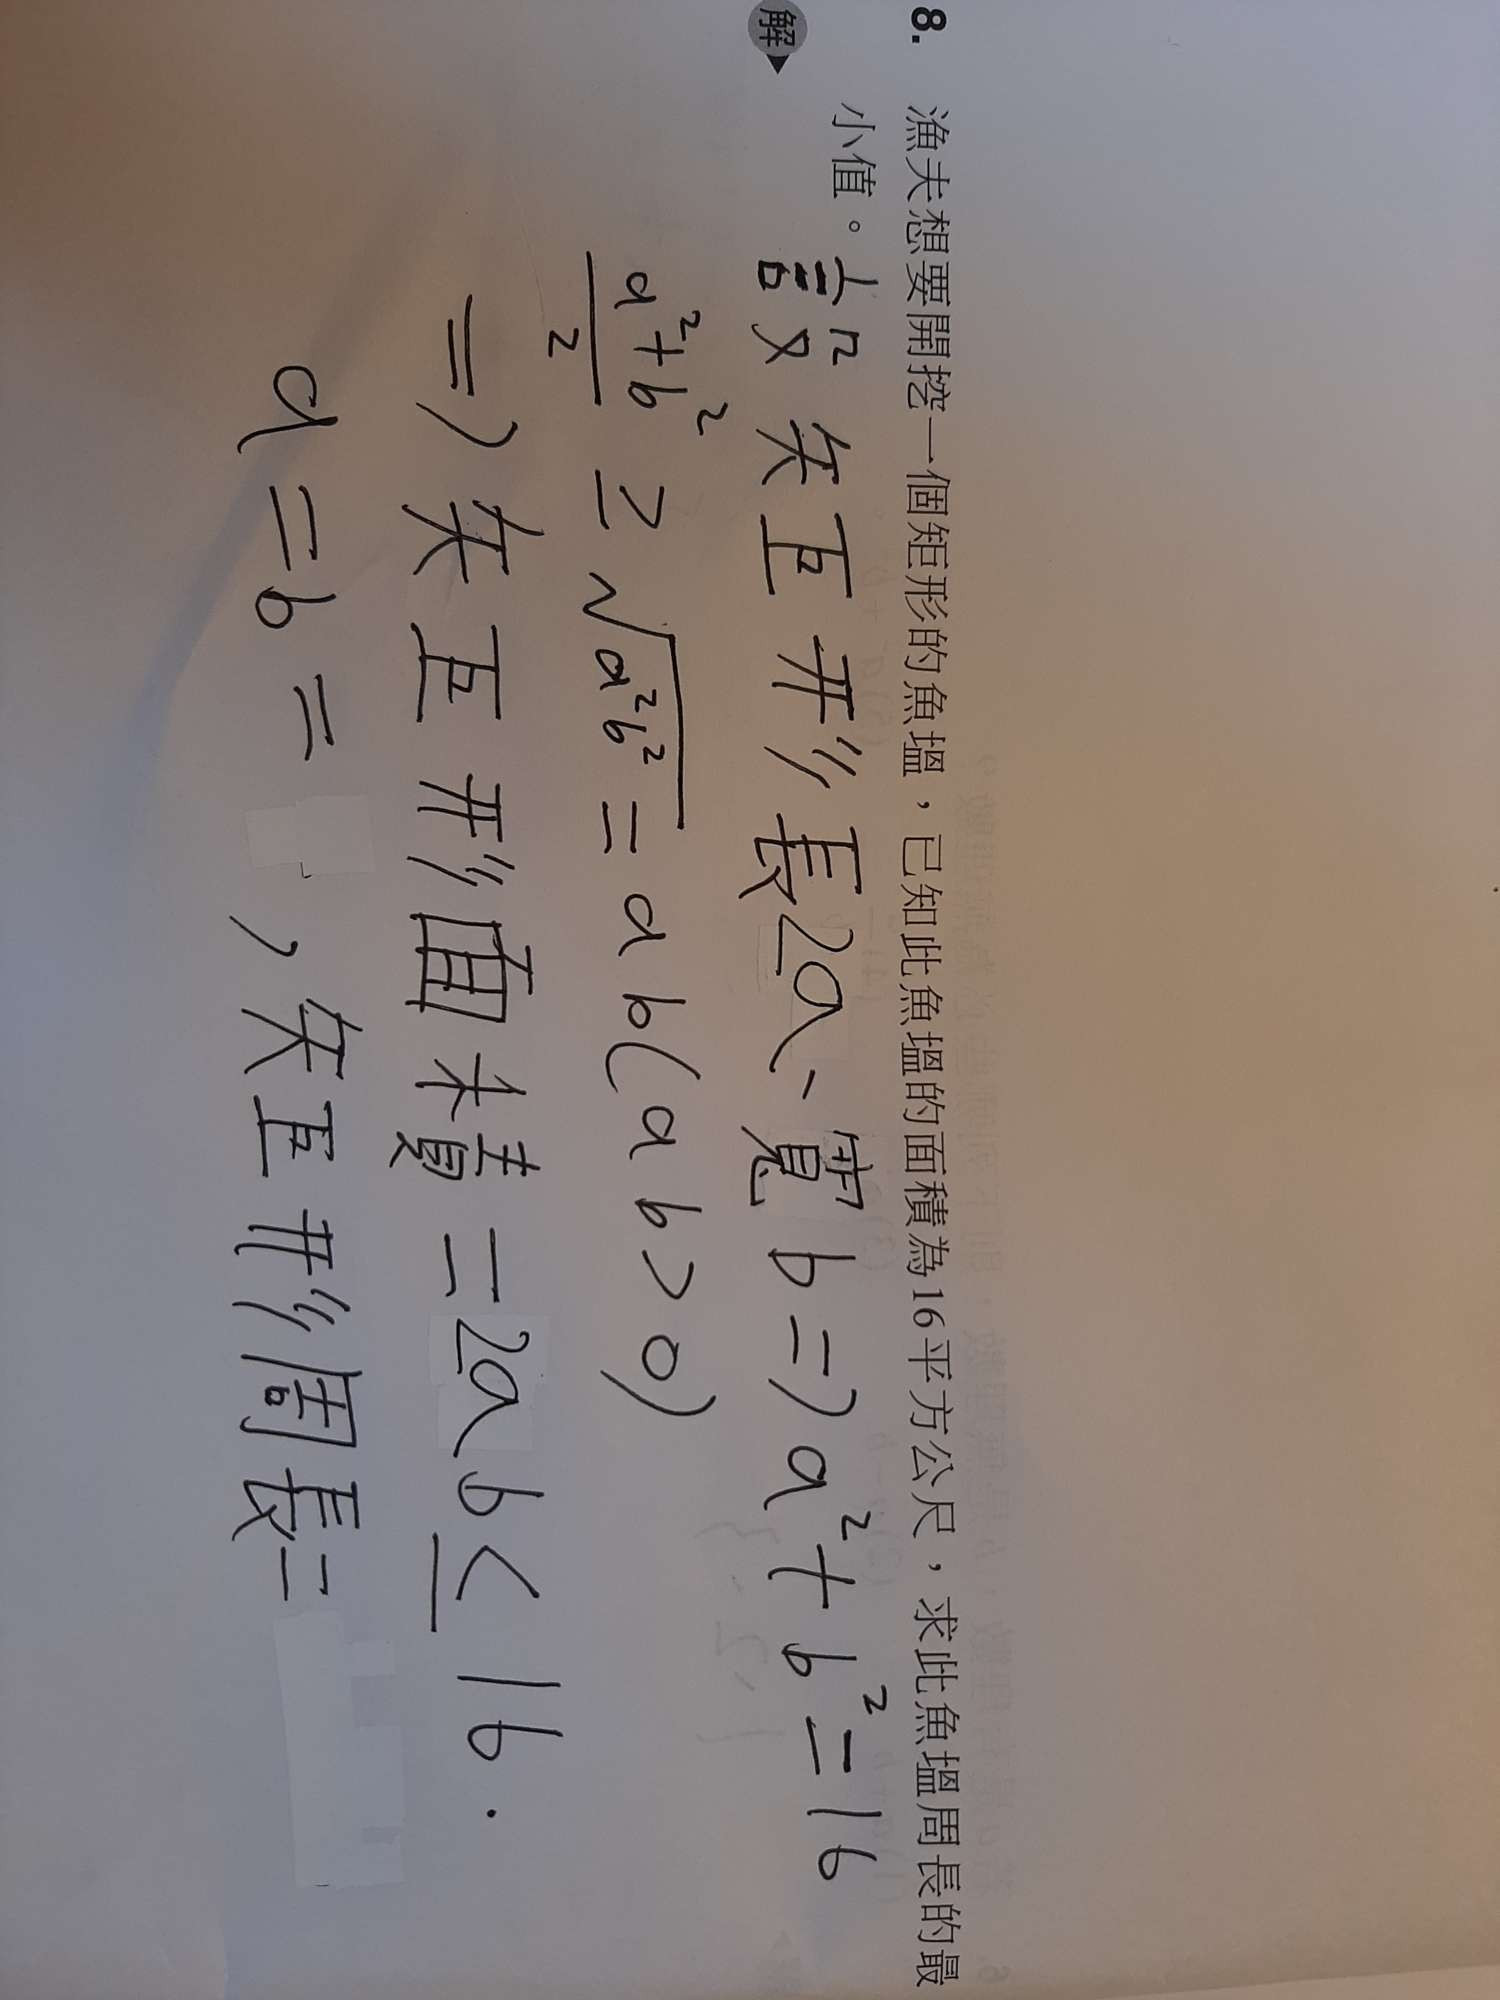 8. 漁夫想要開挖一個矩形的魚塭，已知此魚塭的面積為16平方公尺，求此魚塭周長的最
小值。
解
設矩形長2a、寬b⇒a²+b²=16
a²+b²/2 ≥ √a²b² = ab(ab>0)
⇒矩形面積=2ab≤16.
a=b= ，矩形周長=